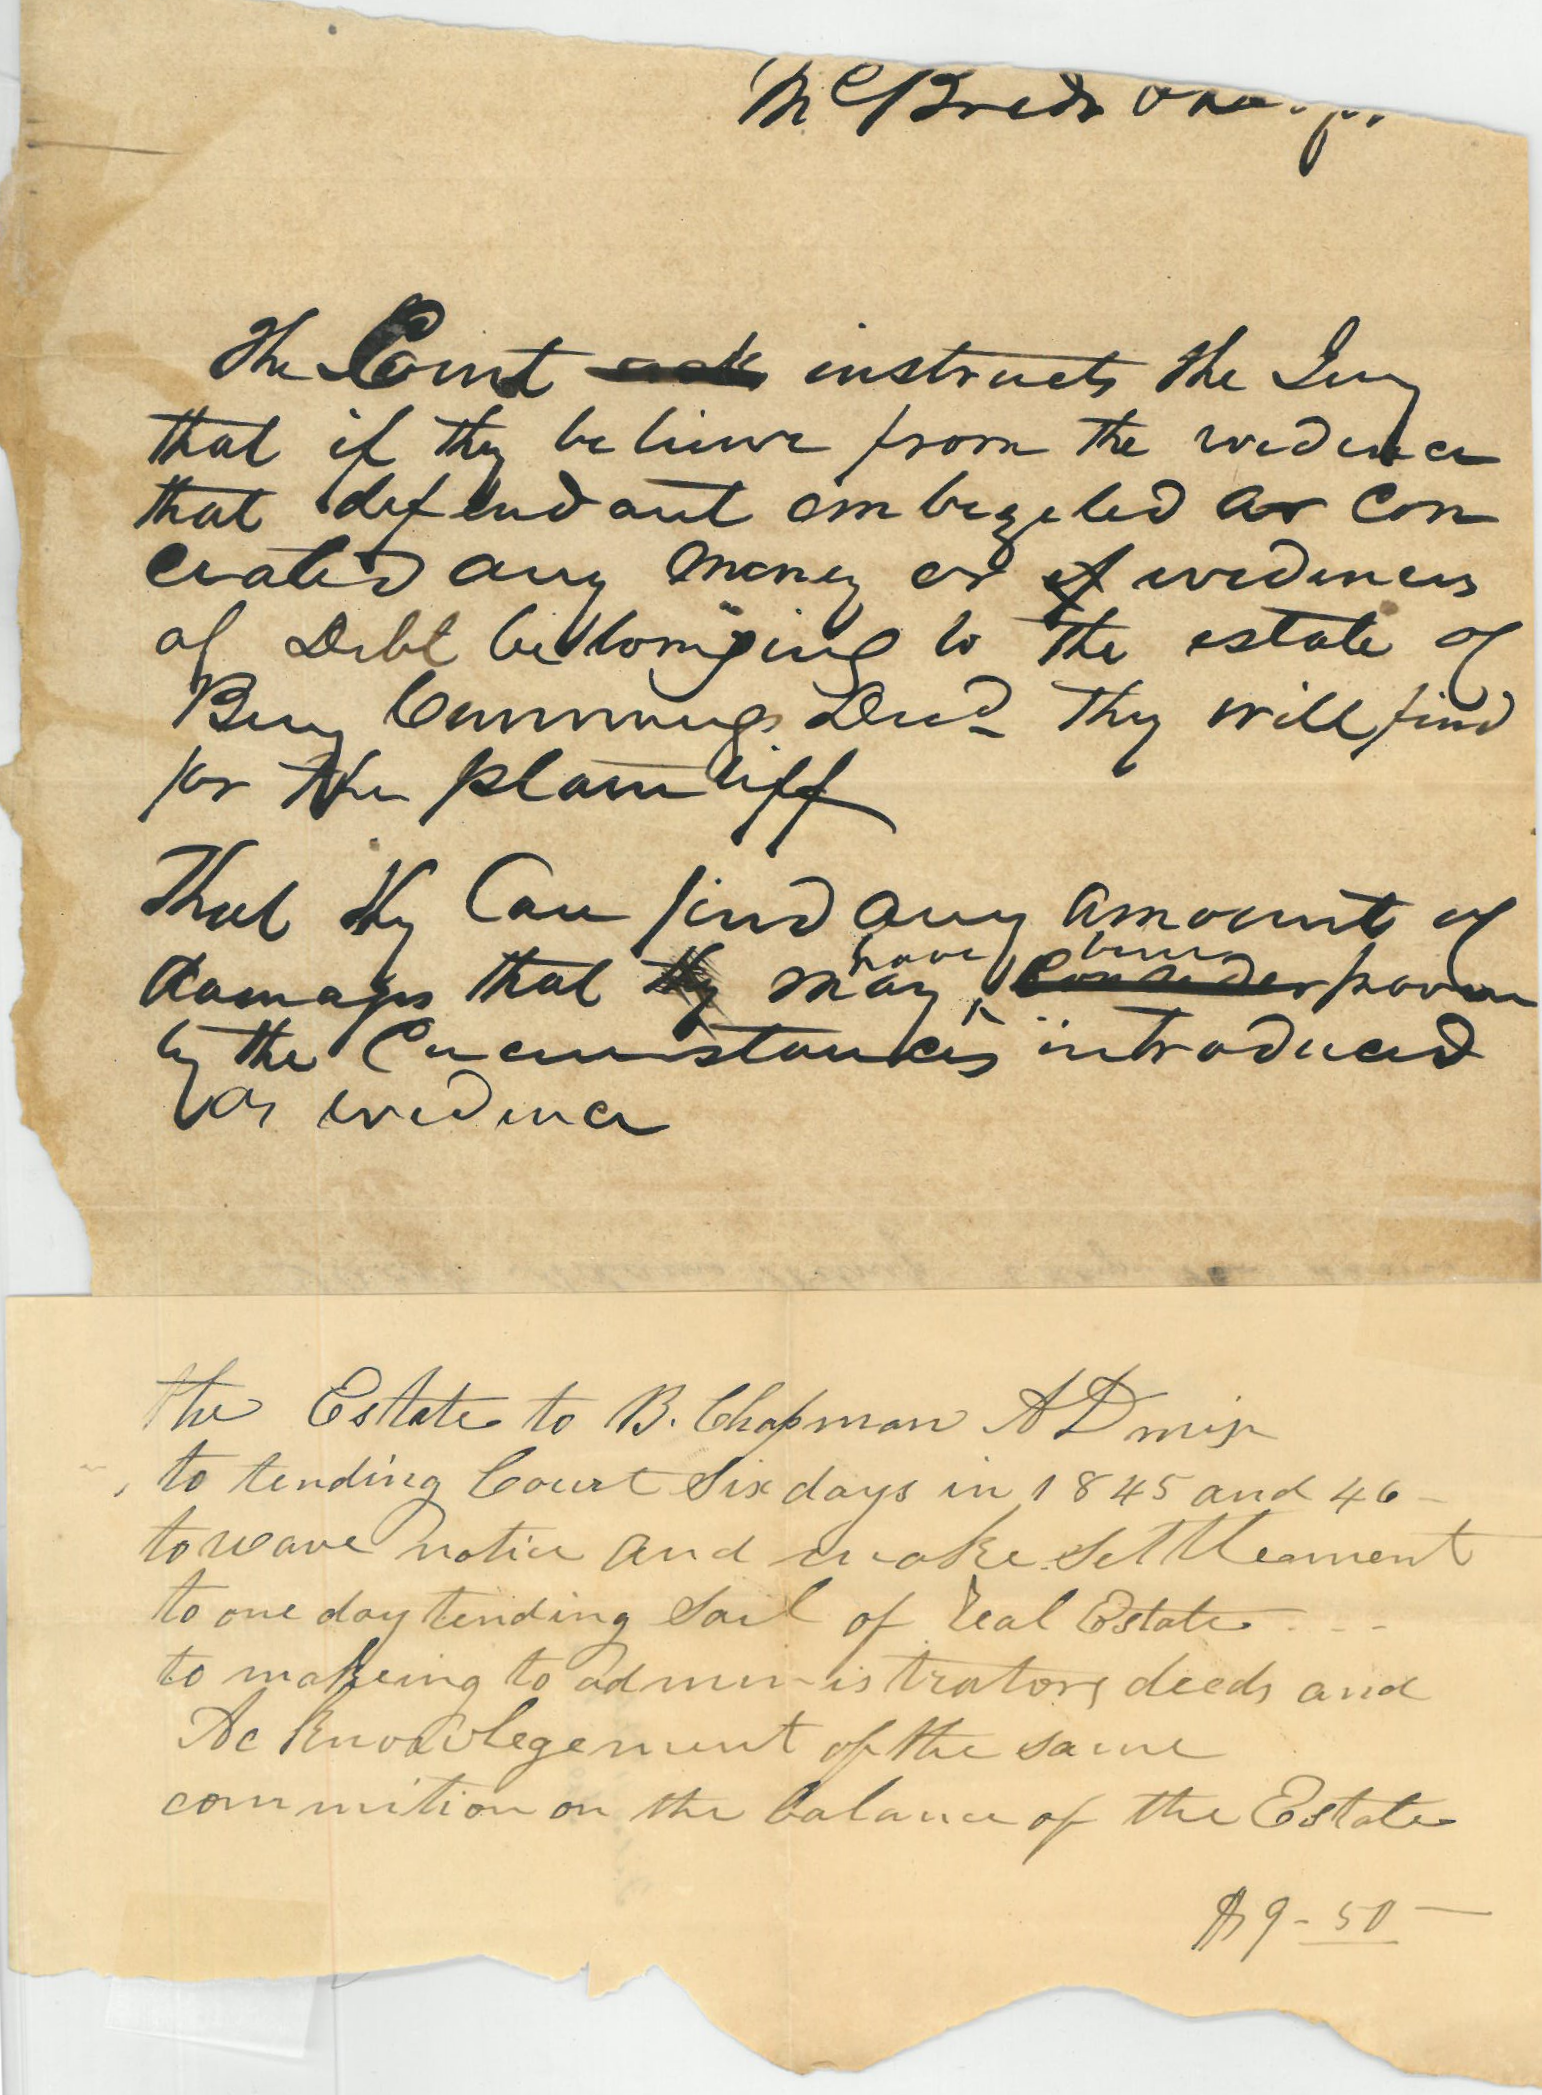 McBride
The Court ask instructs the Jury
that if they believe from the evidence
that defendant embezeled or con
cealed any money or of evidences
of Debt bellonging to the estate of
Benj Cummings Decd They will find
for the plaintiff
That they Can find any amount of
damages that they may have been consider proven
by the Circumstances introduced
as evidence
the Estate to B. Chapman ADmin
to tending Court Six days in 1845 and 46 -
to weave notice and make Settlement
to one day tending Sail of Real Estate - - -
to makeing to administrators deeds and
Acknowlegement of the same
commition on the balance of the Estate
$9-50-